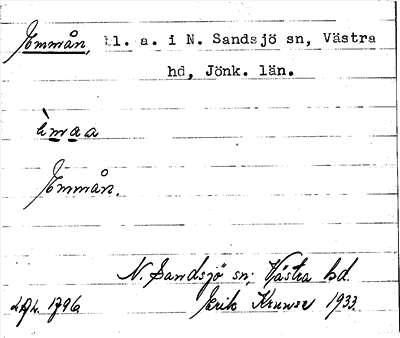 Emmån, bl. a. i N. Sandsjö sn, Västra
hd, Jönk. län.
èmaa
Emmån.
N. Sandsjö sn; Västra hd.
1796 Erik 1933.